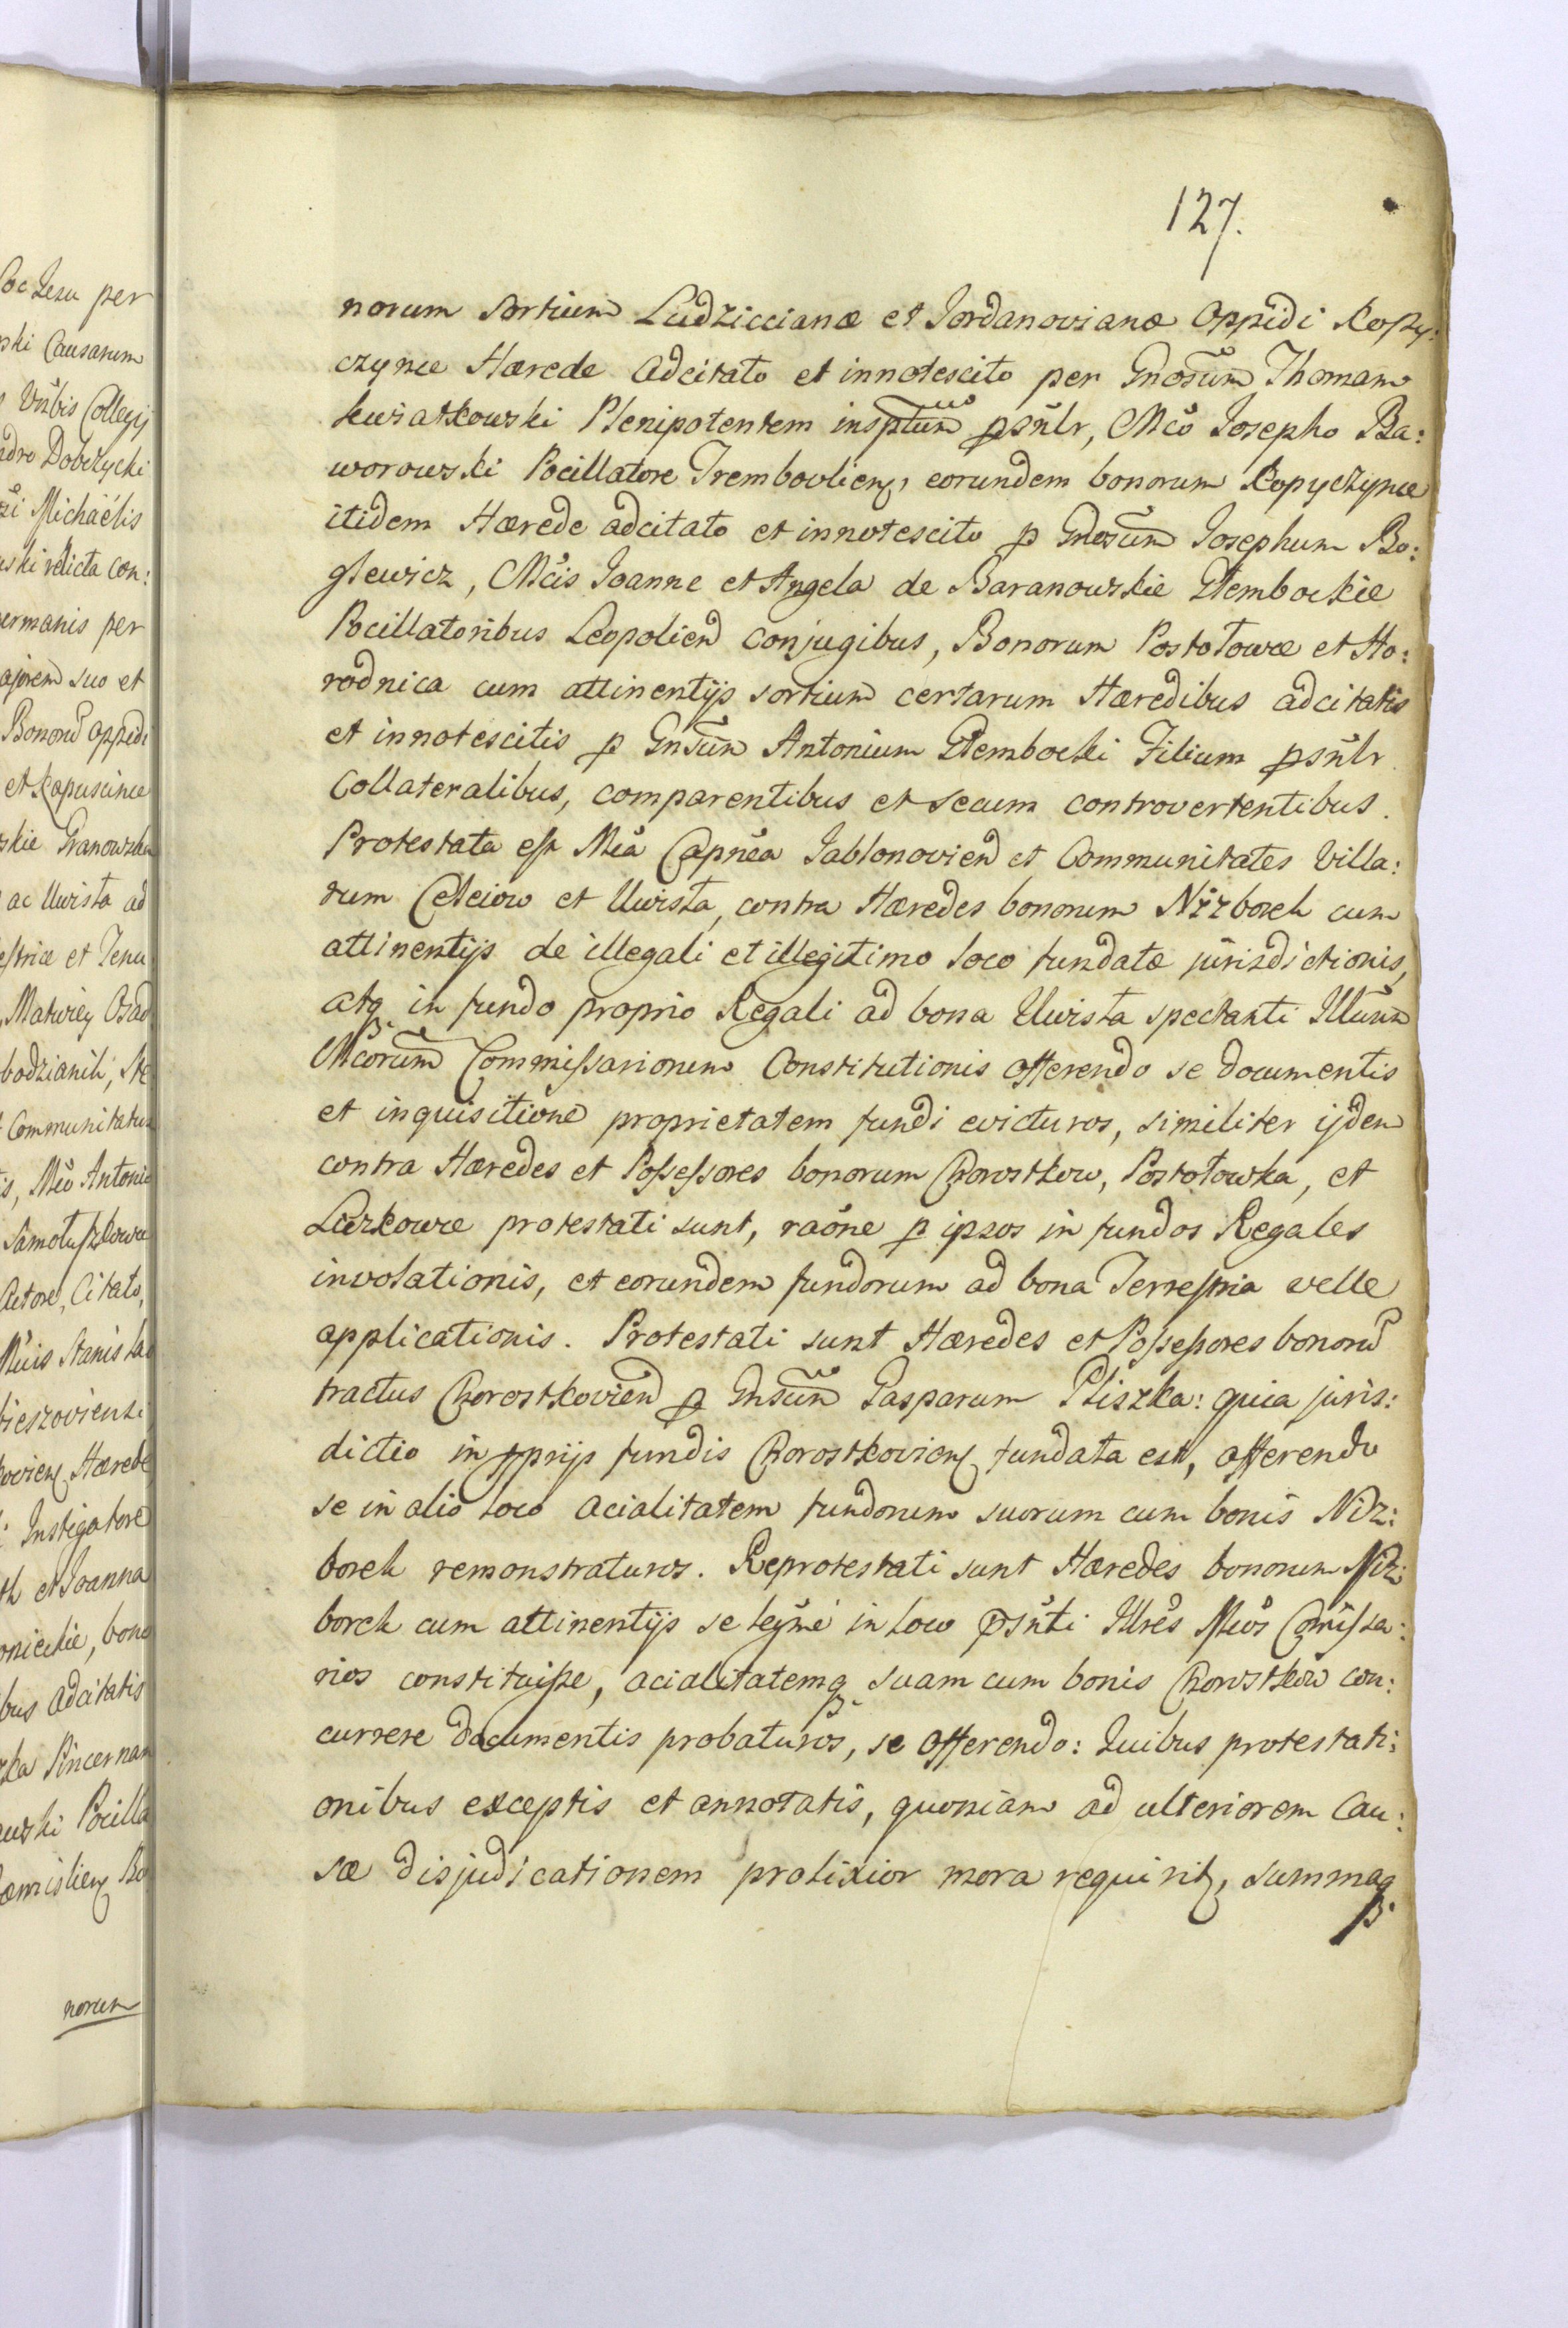 127.
norum sortium Ludziccianæ et Jordanovianæ Oppidi Kopy:
czynce Hærede adcitato et innotescito per Gnosum Thomam
Kwiatkowski Plenipotentem insptum psnlr, Mco Josepho Ba:
worowski Pocillatore Tremboulien, eorundem bonorum Kopyczynce
itidem Hærede adcitato et innotescito p Gnosum Josephum Bo:
glewicz, Mcis Joanne et Angela de Baranowskie Głembockie
Pocillatoribus Leopolien conjugibus, Bonorum Postołowce et Ho:
rodnica cum attinentijs sortium certarum Hæredibus adcitatis
et innotescitis p Gnsum Antonium Głembocki Filium psnlr
Collateralibus, comparentibus et secum controvertentibus.
Protestata est Mca Capnea Jablonovien et Communitates Villa:
rum Celeiow et Uwisła, contra Hæredes bonorum Niżborek cum
attinentijs de illegali et illegitimo loco fundatæ jurisdictionis,
atq in fundo proprio Regali ad bona Uwisła spectanti Illum
Mcorum Commissariorum Constitutionis offerendo se documentis
et inquisitione proprietatem fundi evicturos, similiter ijdem
contra Hæredes et Possessores bonorum Chorostkow, Postołowka, et
Liczkowce protestati sunt, raone p ipsos in fundos Regales
involationis, et eorundem fundorum ad bona Terrestria velle
applicationis. Protestati sunt Hæredes et Possessores bonorum
tractus Chorostkovien p Gnsum Gasparum Pliszka: quia juris:
dictio in pprijs fundis Chorostkovien fundata est, offerendo
se in alio loco acialitatem fundorum suorum cum bonis Niz:
borek remonstraturos. Reprotestati sunt Hæredes bonorum Niz:
borek cum attinentijs se legme in loco psnti Illres Mcos Comissa:
rios constituisse, acialitatemq suam cum bonis Chorostkow con:
currere documentis probaturos, se offerendo: Quibus protestati:
onibus exceptis et annotatis, quoniam ad ulteriorem Cau:
sæ disjudicationem prolixior mora requirit, summaq
oc Jesu per
ski Causarum
Urbis Collegij
ndro Dobrzycki
Michaëlis
uski relicta con:
ermanis per
ajorem suo et
Bonoru oppidi
et Kopuscince
skie Granowska
ac Uwisła ad
estriæ et Tenu
Matwiey Osad
bodzianik, Ste
Communitatum
is, Mco Antonio
Samoluszkowce
Actore, Citato,
Mcis Stanislao
Hærede
Instigatore
et Joanna
bono
bus adcitatis
Pincernam
wski Pocilla
Bo
norum